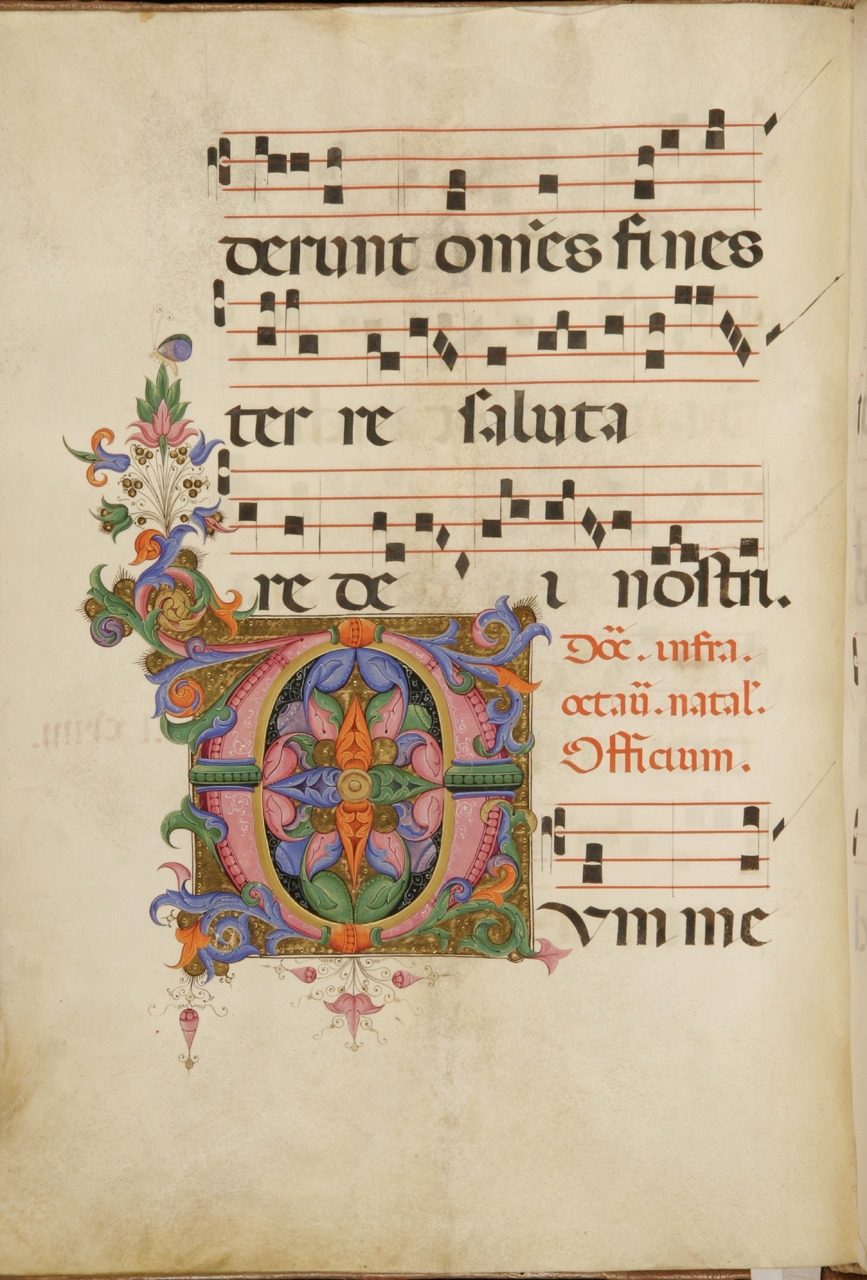 derunt om̅es fines
ter re saluta
re de i nostri.
Doc̅. infra.
octau̅. natal'.
Officium.
Dvm me